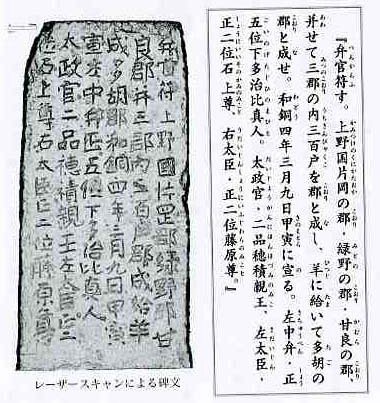 『弁官符す。上野国片岡の郡・緑野の郡・甘良の郡、
并せて三郡の内三百戸を郡と成し、羊に給いて多胡の
郡と成せ。和銅四年三月九日甲寅に宣る。左中弁・正
五位下多治比真人。太政官・二品穂積親王、左太臣・
正二位石上尊、右太臣・正二位藤原尊。』
弁官符上野國片罡郡緑野郡甘
良郡并三郡内三百戸郡成給羊
成多胡郡和銅四年三月九日甲寅
宣左中弁正五位下多治比真人
太政官二品穂積親王左太臣正二
位石上尊右太臣正二位藤原尊
レーザースキャンによる碑文